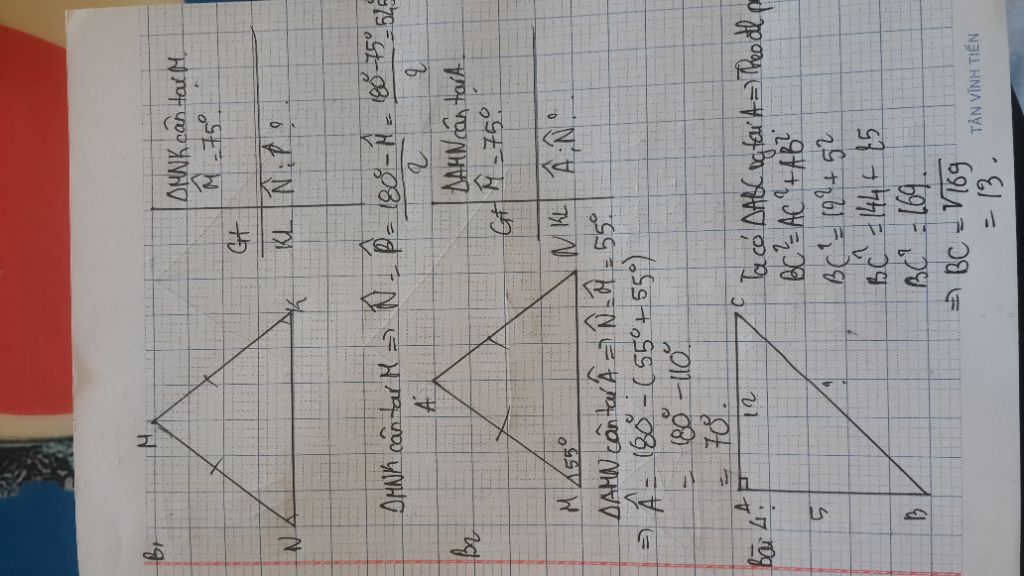 B1
M
N
K
GT
ΔMNK cân tại M.
M̂ = 75°.
KL
N̂ ; ?
ΔMNK cân tại M => N̂ = K̂ = 180° - M̂ / 2 = 180° - 75° / 2 = 52,5°
B2
A
M
55°
N
GT
ΔAMN cân tại A.
M̂ = 75°.
KL
Â ; N̂ ?
ΔAMN cân tại Â => N̂ = M̂ = 55°.
=> Â = 180° - (55° + 55°)
= 180° - 110°
= 70°.
Bài 4:
A
12
C
5
?
B
Ta có ΔABC vg tại A => Theo đl p
BC² = AC² + AB²
BC² = 12² + 5²
BC² = 144 + 25
BC² = 169.
=> BC = √169
= 13.
TÂN VĨNH TIẾN